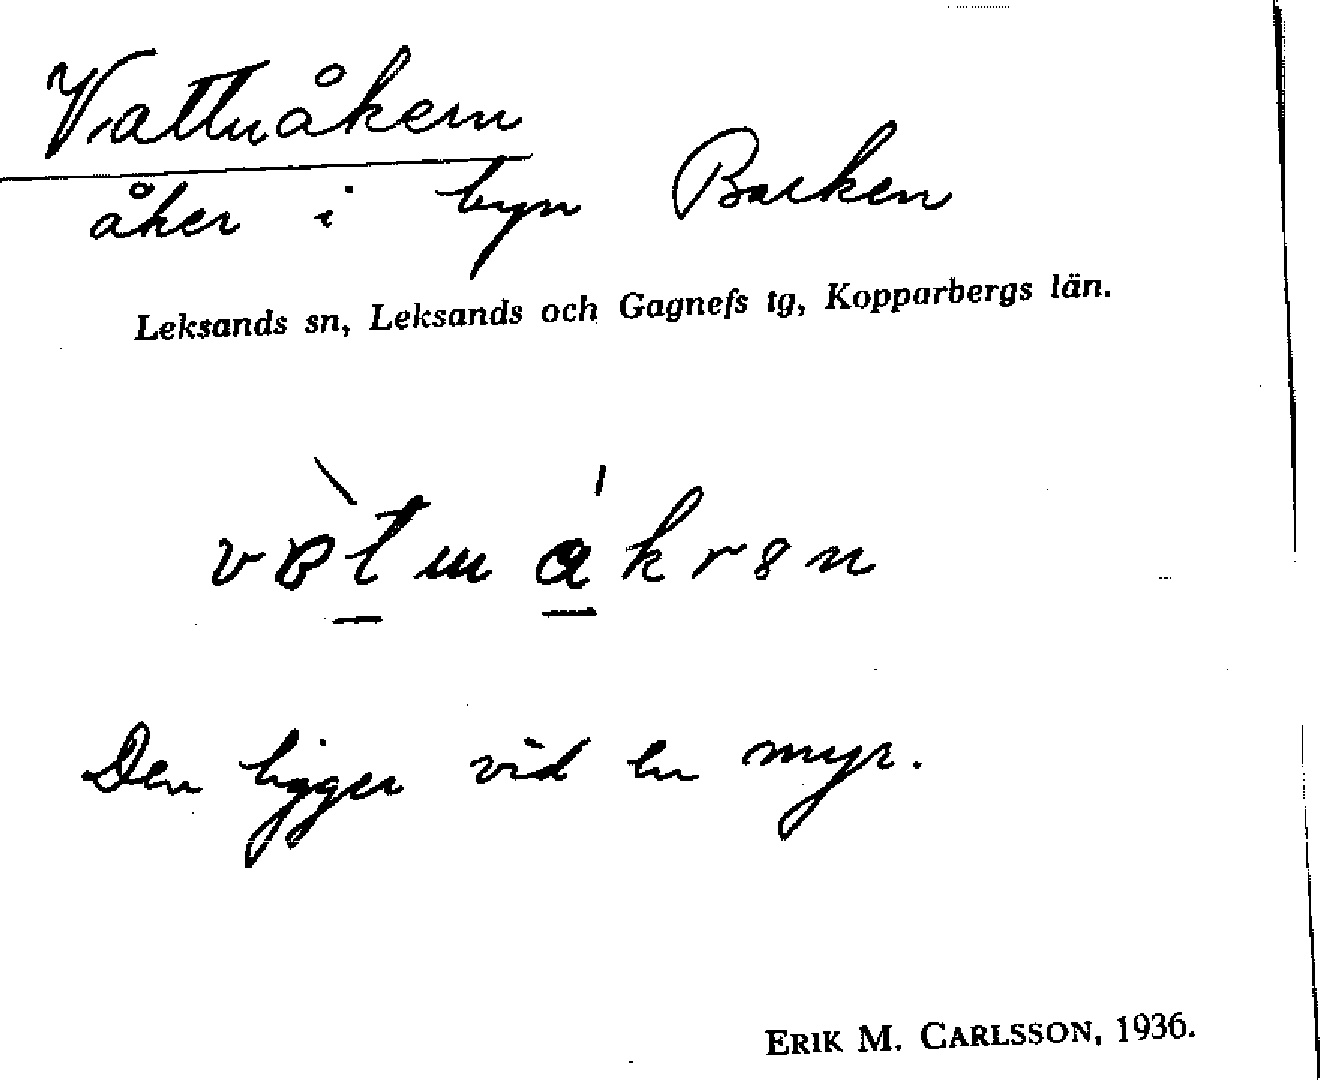 Vattuåkern
åker i byn Backen
Leksands sn, Leksands och Gagnefs tg, Kopparbergs län.
Den ligger vid en myr.
ERIK M. CARLSSON, 1936.